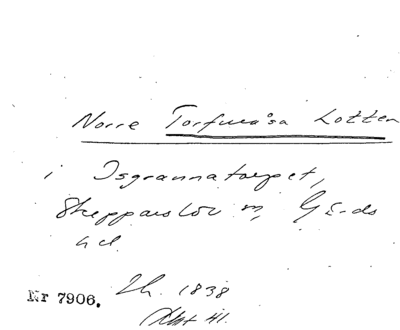 Norre Torfmåsa Lotten
i Isgrannatorpet,
Skepparslöv sn, Gärds
hd.
Nr 7906. Lh. 1838
Akt 41.